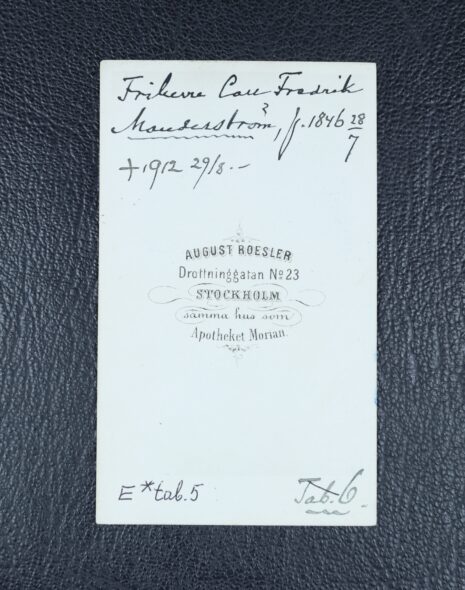 Friherre Carl Fredrik
Manderström, f. 1846 28/7
+ 1912 29/8.-
AUGUST ROESLER
Drottninggatan No 23
STOCKHOLM
samma hus som
Apotheket Morian.
E* tab. 5
Tab. 6.